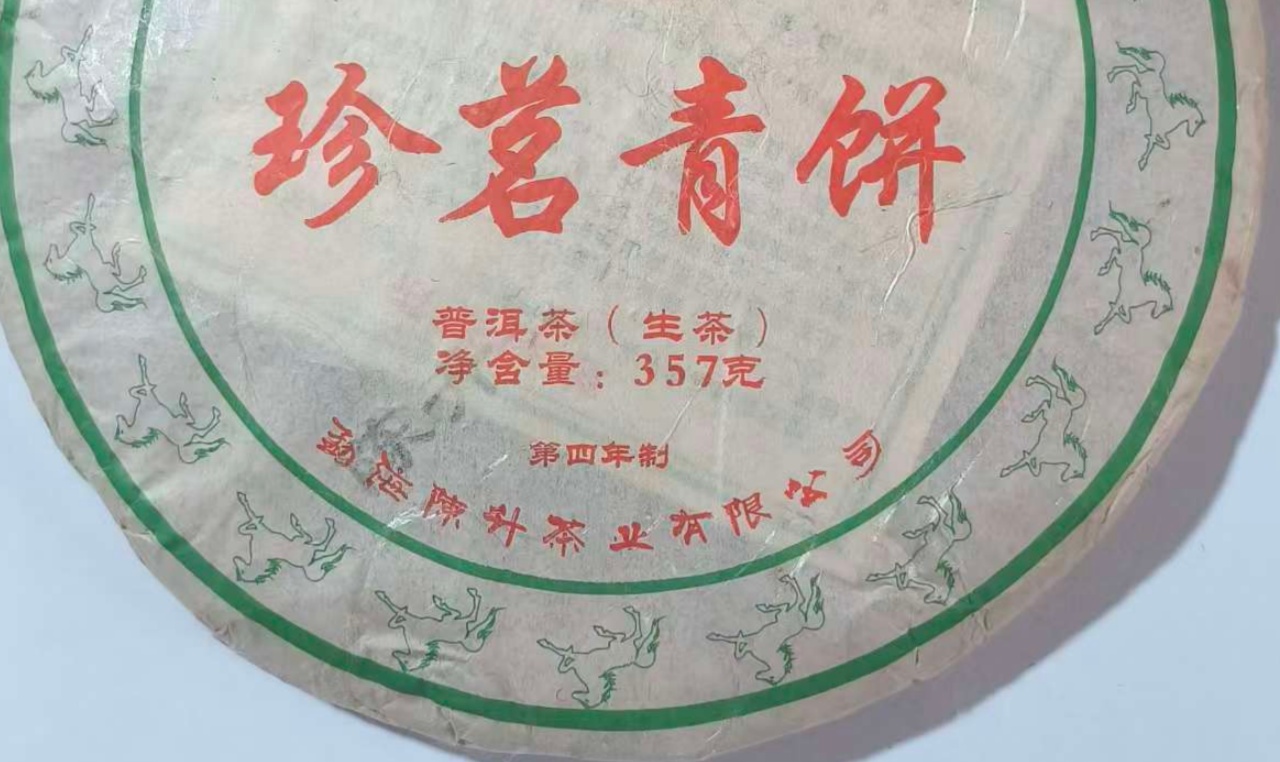 珍茗青饼
普洱茶（生茶）
净含量：357克
第四年制
勐海陳升茶业有限公司